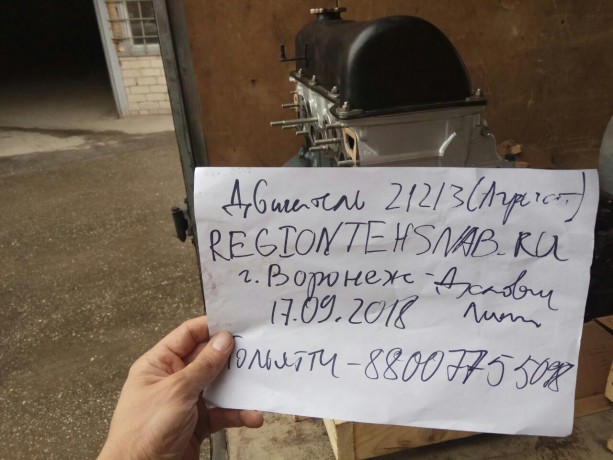 Двигатель 21213 (Агрегат)
REGIONTEHSNAB.RU
г. Воронеж - Деловые
17.09.2018 Линии
Тольятти - 88007755098